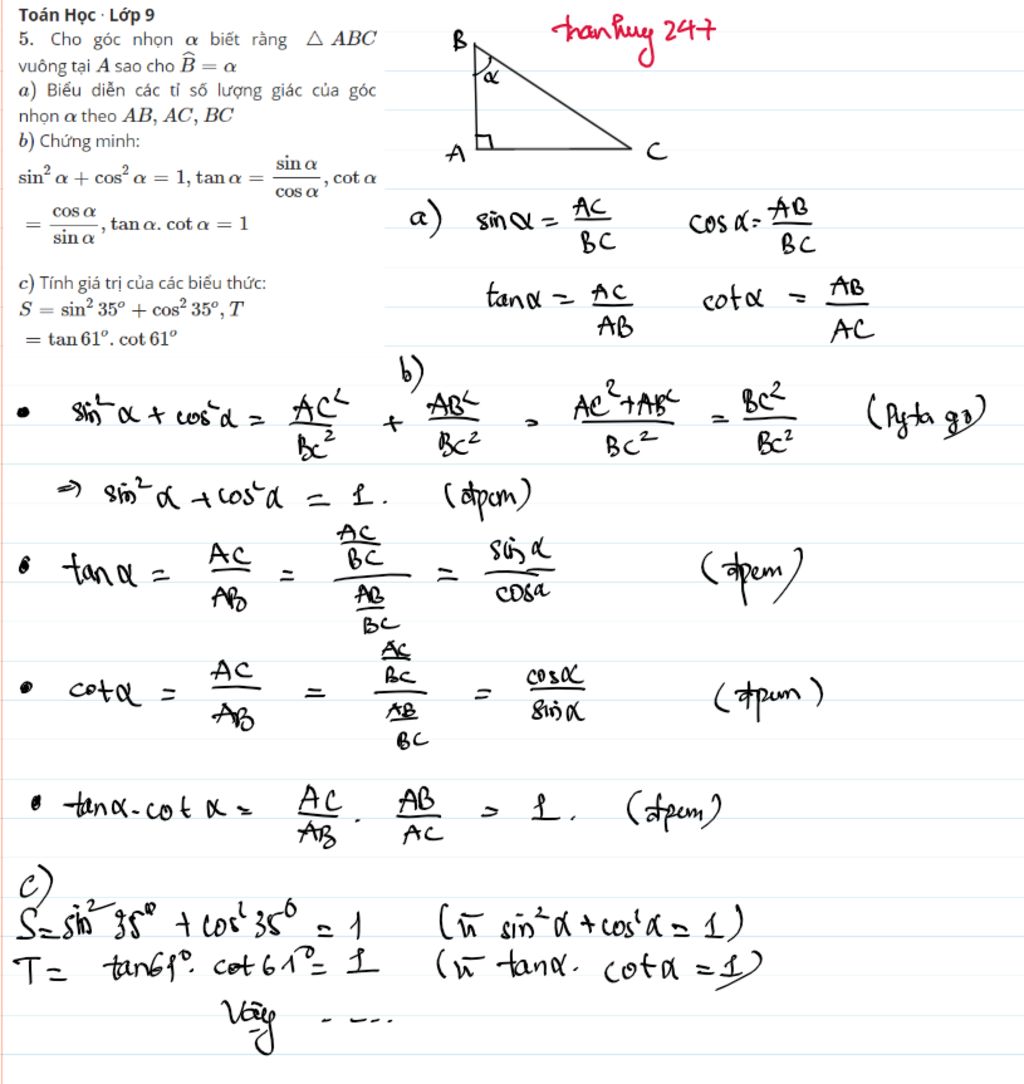 Toán Học · Lớp 9
5. Cho góc nhọn α biết rằng △ ABC
vuông tại A sao cho B̂ = α
a) Biểu diễn các tỉ số lượng giác của góc
nhọn α theo AB, AC, BC
b) Chứng minh:
sin² α + cos² α = 1, tan α = sin α / cos α, cot α
= cos α / sin α, tan α. cot α = 1
c) Tính giá trị của các biểu thức:
S = sin² 35° + cos² 35°, T
= tan 61°. cot 61°
thanhuy 247
B
α
A
C
a) sin α = AC/BC cos α = AB/BC
tan α = AC/AB cot α = AB/AC
b)
• sin² α + cos² α = AC²/BC² + AB²/BC² = (AC² + AB²)/BC² = BC²/BC² (Pytago)
⇒ sin² α + cos² α = 1. (đpcm)
• tan α = AC/AB = (AC/BC)/(AB/BC) = sin α / cos α (đpcm)
• cot α = AC/AB = (AC/BC)/(AB/BC) = cos α / sin α (đpcm)
• tan α . cot α = AC/AB . AB/AC = 1. (đpcm)
c)
S = sin² 35° + cos² 35° = 1 (vì sin² α + cos² α = 1)
T = tan 61° . cot 61° = 1 (vì tan α . cot α = 1)
Vậy - - - - -